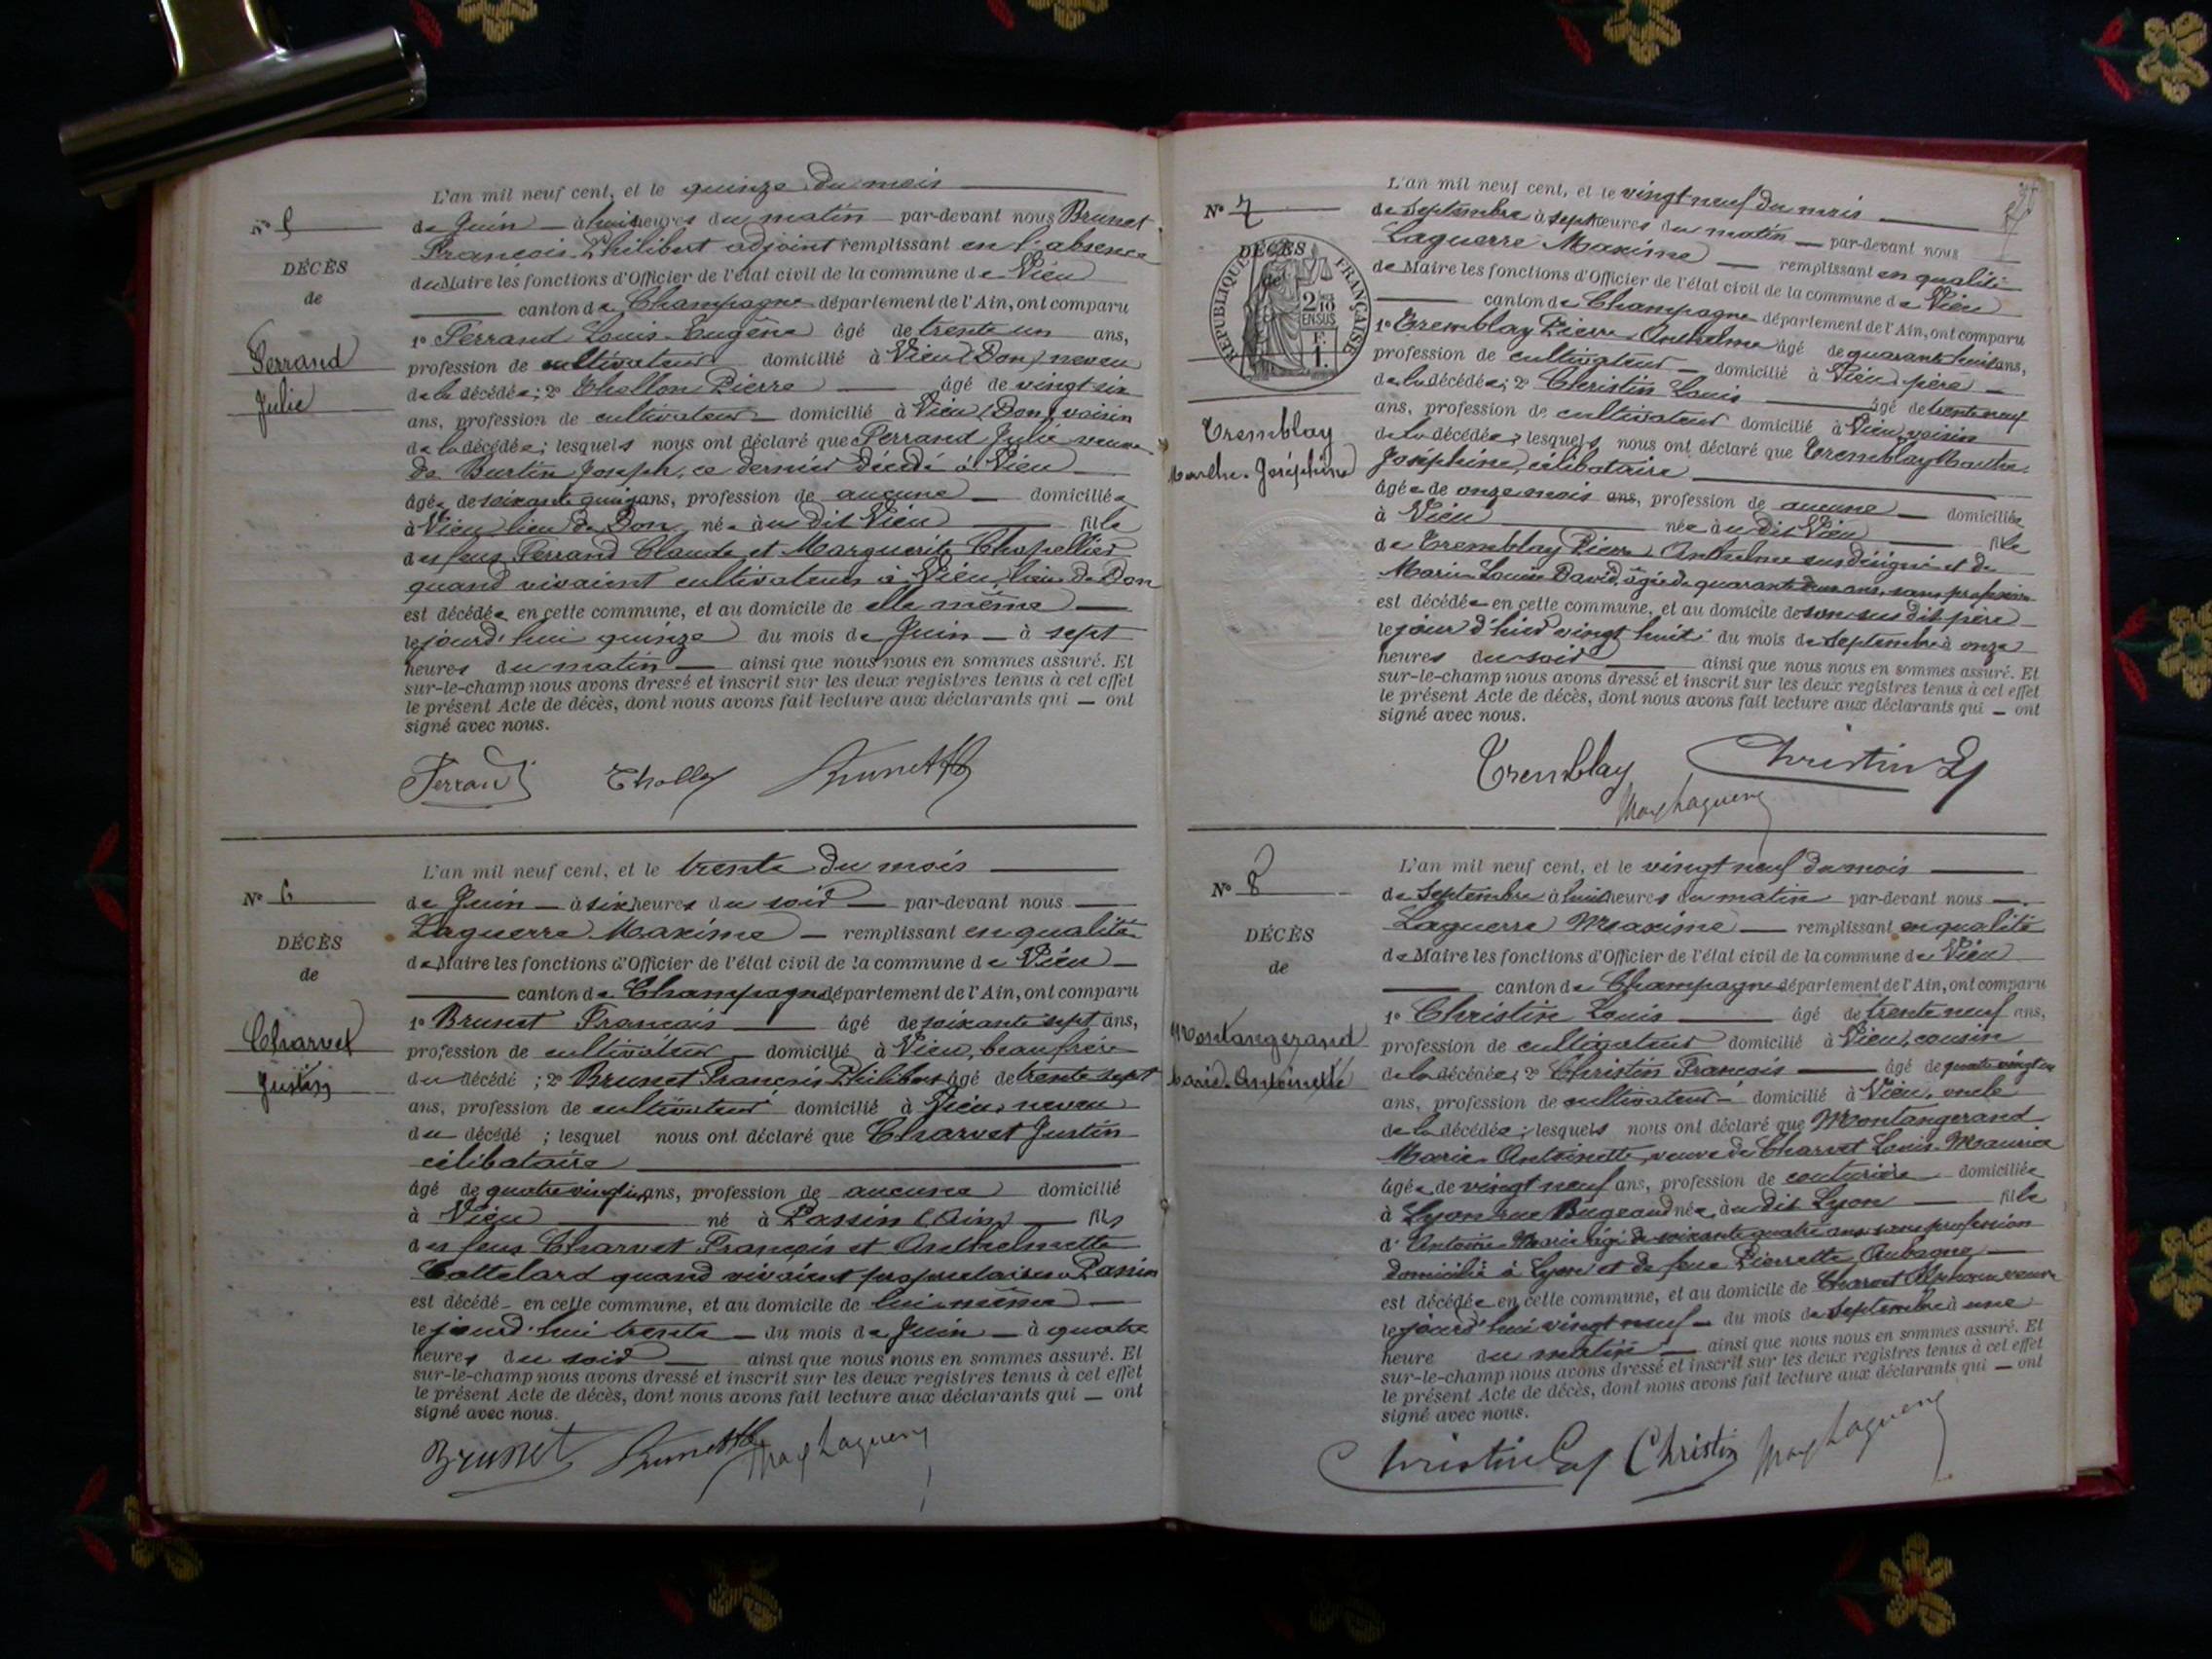 L'an mil neuf cent, et le quinze du mois
N° 5
de Juin à huit heures du matin par-devant nous Brunet
François Philibert adjoint remplissant en l'absence
DÉCÈS
du Maire les fonctions d'Officier de l'état civil de la commune de Vieu
de
canton de Champagne département de l'Ain, ont comparu
1° Ferrand Louis Eugène âgé de trente un ans,
Ferrand
profession de cultivateur domicilié à Vieu (Don) neveu
de la décédée; 2° Thollon Pierre âgé de vingt six
Julie
ans, profession de cultivateur domicilié à Vieu (Don) voisin
de la décédée; lesquels nous ont déclaré que Ferrand Julie veuve
de Burtin Joseph, ce dernier décédé à Vieu
âgée de soixante quinze ans, profession de aucune domiciliée
à Vieu lieu de Don née à u dit Vieu fille
des feus Ferrand Claude et Marguerite Chapellier
quand vivaient cultivateurs à Vieu, lieu de Don
est décédée en cette commune, et au domicile de elle même
le jourd'hui quinze du mois de Juin à sept
heures du matin ainsi que nous nous en sommes assuré. Et
sur-le-champ nous avons dressé et inscrit sur les deux registres tenus à cet effet
le présent Acte de décès, dont nous avons fait lecture aux déclarants qui — ont
signé avec nous.
Ferrand Thollon Brunet
L'an mil neuf cent, et le trente du mois
N° 6
de Juin à six heures du soir par-devant nous
Laguerre Maxime remplissant en qualité
DÉCÈS
de Maire les fonctions d'Officier de l'état civil de la commune de Vieu
de
canton de Champagne département de l'Ain, ont comparu
1° Brunet François âgé de soixante sept ans,
Charvet
profession de cultivateur domicilié à Vieu, beau frère
Justin
du décédé ; 2° Brunet François Philibert âgé de trente sept
ans, profession de cultivateur domicilié à Vieu, neveu
du décédé ; lesquel nous ont déclaré que Charvet Justin
célibataire
âgé de quatre vingt ans, profession de aucune domicilié
à Vieu né à Passin (Ain) fils
des feus Charvet François et Anthelmette
Cattelard quand vivaient propriétaires à Passin
est décédé en cette commune, et au domicile de lui même
le jourd'hui trente du mois de Juin à quatre
heures du soir ainsi que nous nous en sommes assuré. Et
sur-le-champ nous avons dressé et inscrit sur les deux registres tenus à cet effet
le présent Acte de décès, dont nous avons fait lecture aux déclarants qui — ont
signé avec nous.
Brunet Brunet Max Laguerre
L'an mil neuf cent, et le vingt neuf du mois
N° 7
de Septembre à sept heures du matin par-devant nous
Laguerre Maxime remplissant en qualité
DÉCÈS
de
RÉPUBLIQUE FRANÇAISE
2/10 EN SUS
F. 1.
de Maire les fonctions d'Officier de l'état civil de la commune de Vieu
canton de Champagne département de l'Ain, ont comparu
1° Tremblay Pierre Anthelme âgé de quarante huit ans,
profession de cultivateur domicilié à Vieu, père
de la décédée; 2° Christin Louis âgé de trente neuf
ans, profession de cultivateur domicilié à Vieu, voisin
Tremblay
de la décédée; lesquels nous ont déclaré que Tremblay Marthe
Marthe Joséphine
Joséphine, célibataire
âgée de onze mois ans, profession de aucune domiciliée
à Vieu née à u dit Vieu fille
de Tremblay Pierre Anthelme susdésigné et de
Marie Louise David, âgée de quarante deux ans, sans profession
est décédée en cette commune, et au domicile de son sus dit père
le jour d'hier vingt huit du mois de Septembre à onze
heures du soir ainsi que nous nous en sommes assuré. Et
sur-le-champ nous avons dressé et inscrit sur les deux registres tenus à cet effet
le présent Acte de décès, dont nous avons fait lecture aux déclarants qui — ont
signé avec nous.
Tremblay Christin
Max Laguerre
L'an mil neuf cent, et le vingt neuf du mois
N° 8
de Septembre à huit heures du matin par-devant nous
Laguerre Maxime remplissant en qualité
DÉCÈS
de Maire les fonctions d'Officier de l'état civil de la commune de Vieu
de
canton de Champagne département de l'Ain, ont comparu
1° Christin Louis âgé de trente neuf ans,
Montangerand
profession de cultivateur domicilié à Vieu, cousin
Marie Antoinette
de la décédée; 2° Christin François âgé de quatre vingt un
ans, profession de cultivateur domicilié à Vieu, oncle
de la décédée; lesquels nous ont déclaré que Montangerand
Marie Antoinette, veuve de Charvet Louis Maurice
âgée de vingt neuf ans, profession de couturière domiciliée
à Lyon rue Bugeaud née à u dit Lyon fille
d' Antoine Marie âgé de soixante quatre ans sans profession
domicilié à Lyon et de feue Pierrette Aubagne
est décédée en cette commune, et au domicile de Charvet veuve
le jourd'hui vingt neuf du mois de Septembre à une
heure du matin ainsi que nous nous en sommes assuré. Et
sur-le-champ nous avons dressé et inscrit sur les deux registres tenus à cet effet
le présent Acte de décès, dont nous avons fait lecture aux déclarants qui — ont
signé avec nous.
Christin Christin Max Laguerre